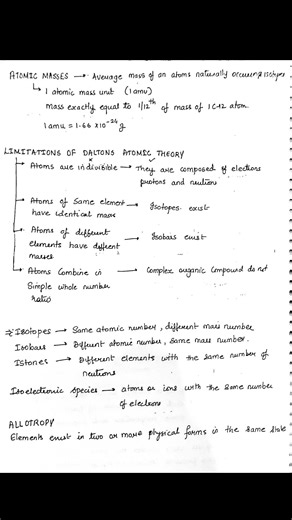 ATOMIC MASSES → Average mass of an atoms naturally occuring isotopes
↳ 1 atomic mass unit (1 amu)
mass exactly equal to 1/12th of mass of 1 C-12 atom
1 amu = 1.66 x10⁻²⁴ g
LIMITATIONS OF DALTONS ATOMIC THEORY
Atoms are indivisible → They are composed of electrons
protons and neutrons
Atoms of Same element → Isotopes exist
have identical mass
Atoms of different → Isobars exist
elements have different
masses
Atoms Combine in → Complex organic compound do not
Simple whole number
ratio
Isotopes → Same atomic number, different mass number
Isobars → Diffrent atomic number, same mass number.
Istones → Different elements with the same number of
neutrons
Isoelectronic species → atoms or ions with the same number
of electrons
ALLOTROPY
Elements exist in two or more physical forms in the same state